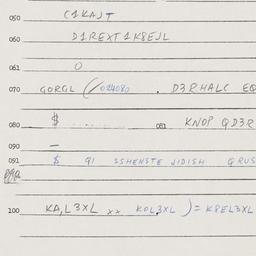 050 (1KAJT
060 D1REXT1K8EJL
061 O
070 GORGL (/024080 . D3RHALC EQ
080 $ ..... 081 KNOP QD3R
090 —
091 $ 91 SSHENSTE JIDISH QRUS
100 KA,L3XL xx KOL3XL ) = K8EL3XL